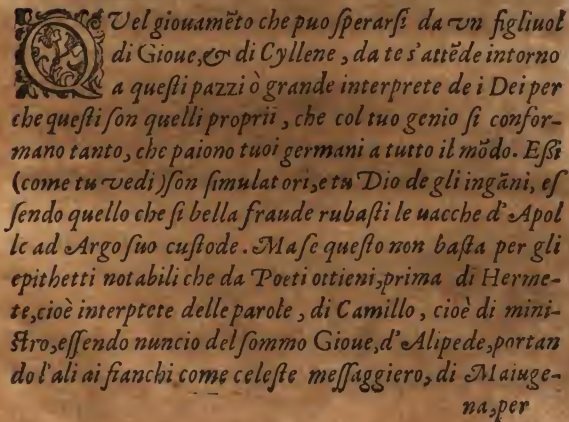 QVel giouamẽto che puo ſperarſi da vn figliuol
di Gioue,& di Cyllene , da te s'attẽde intorno
a queſti pazzi ò grande interprete de i Dei per
che queſti ſon quelli proprii , che col tuo genio ſi confor-
mano tanto, che paiono tuoi germani a tutto il mõdo. Eſsi
(come tu vedi)ſon ſimulatori,e tu Dio de gli ingãni, eſ
ſendo quello che ſi bella fraude rubaſti le uacche d'Apol
lc ad Argo ſuo cuſtode. Ma ſe queſto non baſta per gli
epithetti notabili che da Poeti ottieni,prima di Herme-
te,cioè interptete delle parole , di Camillo, cioè di mini-
ſtro,eſſendo nuncio del ſommo Gioue,d'Alipede,portan
do l'ali ai fianchi come celeſte meſſaggiero, di Maiuge-
na,per